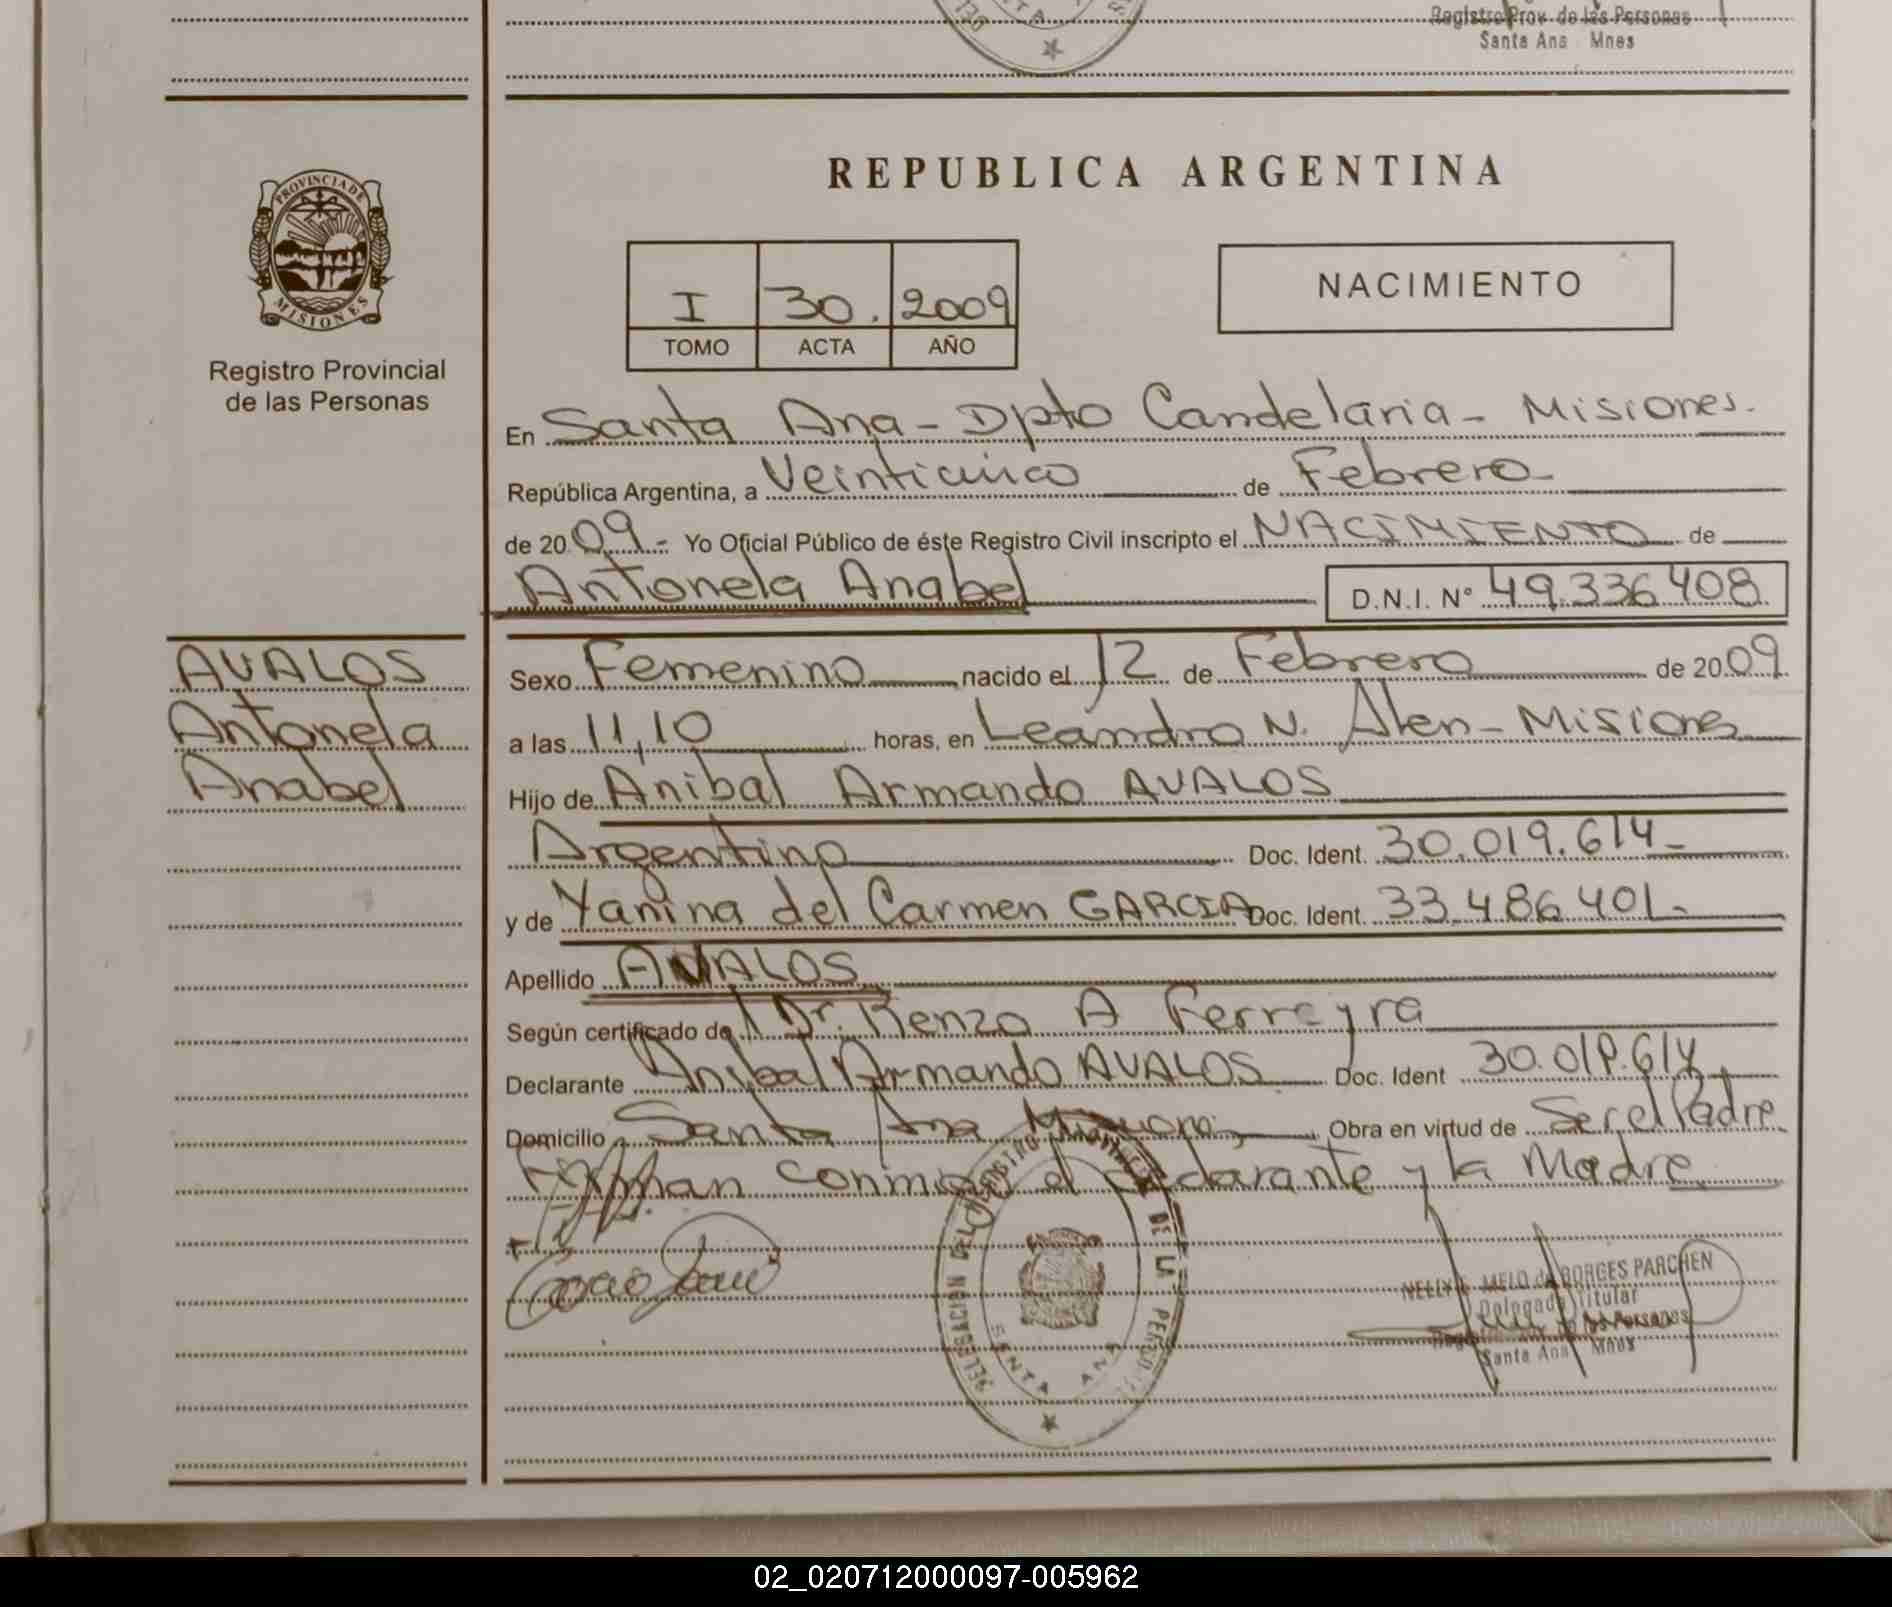 Registro Prov. de las Personas
Santa Ana Mnes
PROVINCIA DE
MISIONES
Registro Provincial
de las Personas
REPUBLICA ARGENTINA
I 30. 2009
TOMO ACTA AÑO
NACIMIENTO
En Santa Ana - Dpto Candelaria - Misiones.
República Argentina, a Veinticinco de Febrero
de 2009.- Yo Oficial Público de éste Registro Civil inscripto el NACIMIENTO de
Antonela Anabel D.N.I. N° 49.336.408
AVALOS
Antonela
Anabel
Sexo Femenino nacido el 12 de Febrero de 2009
a las 11,10 horas, en Leandro N. Alen - Misiones
Hijo de Anibal Armando AVALOS
Argentino Doc. Ident. 30.019.614-
y de Yanina del Carmen GARCIA Doc. Ident. 33.486.401-
Apellido AVALOS
Según certificado de Dr. Renzo A Ferreyra
Declarante Anibal Armando AVALOS Doc. Ident 30.019.614
Domicilio Santa Ana Misiones Obra en virtud de Ser el Padre
Firman conmigo el declarante y la Madre
SANTA ANA
MELO de BORGES PARCHEN
Delegada Titular
de las Personas
Santa Ana Mnes
02_020712000097-005962